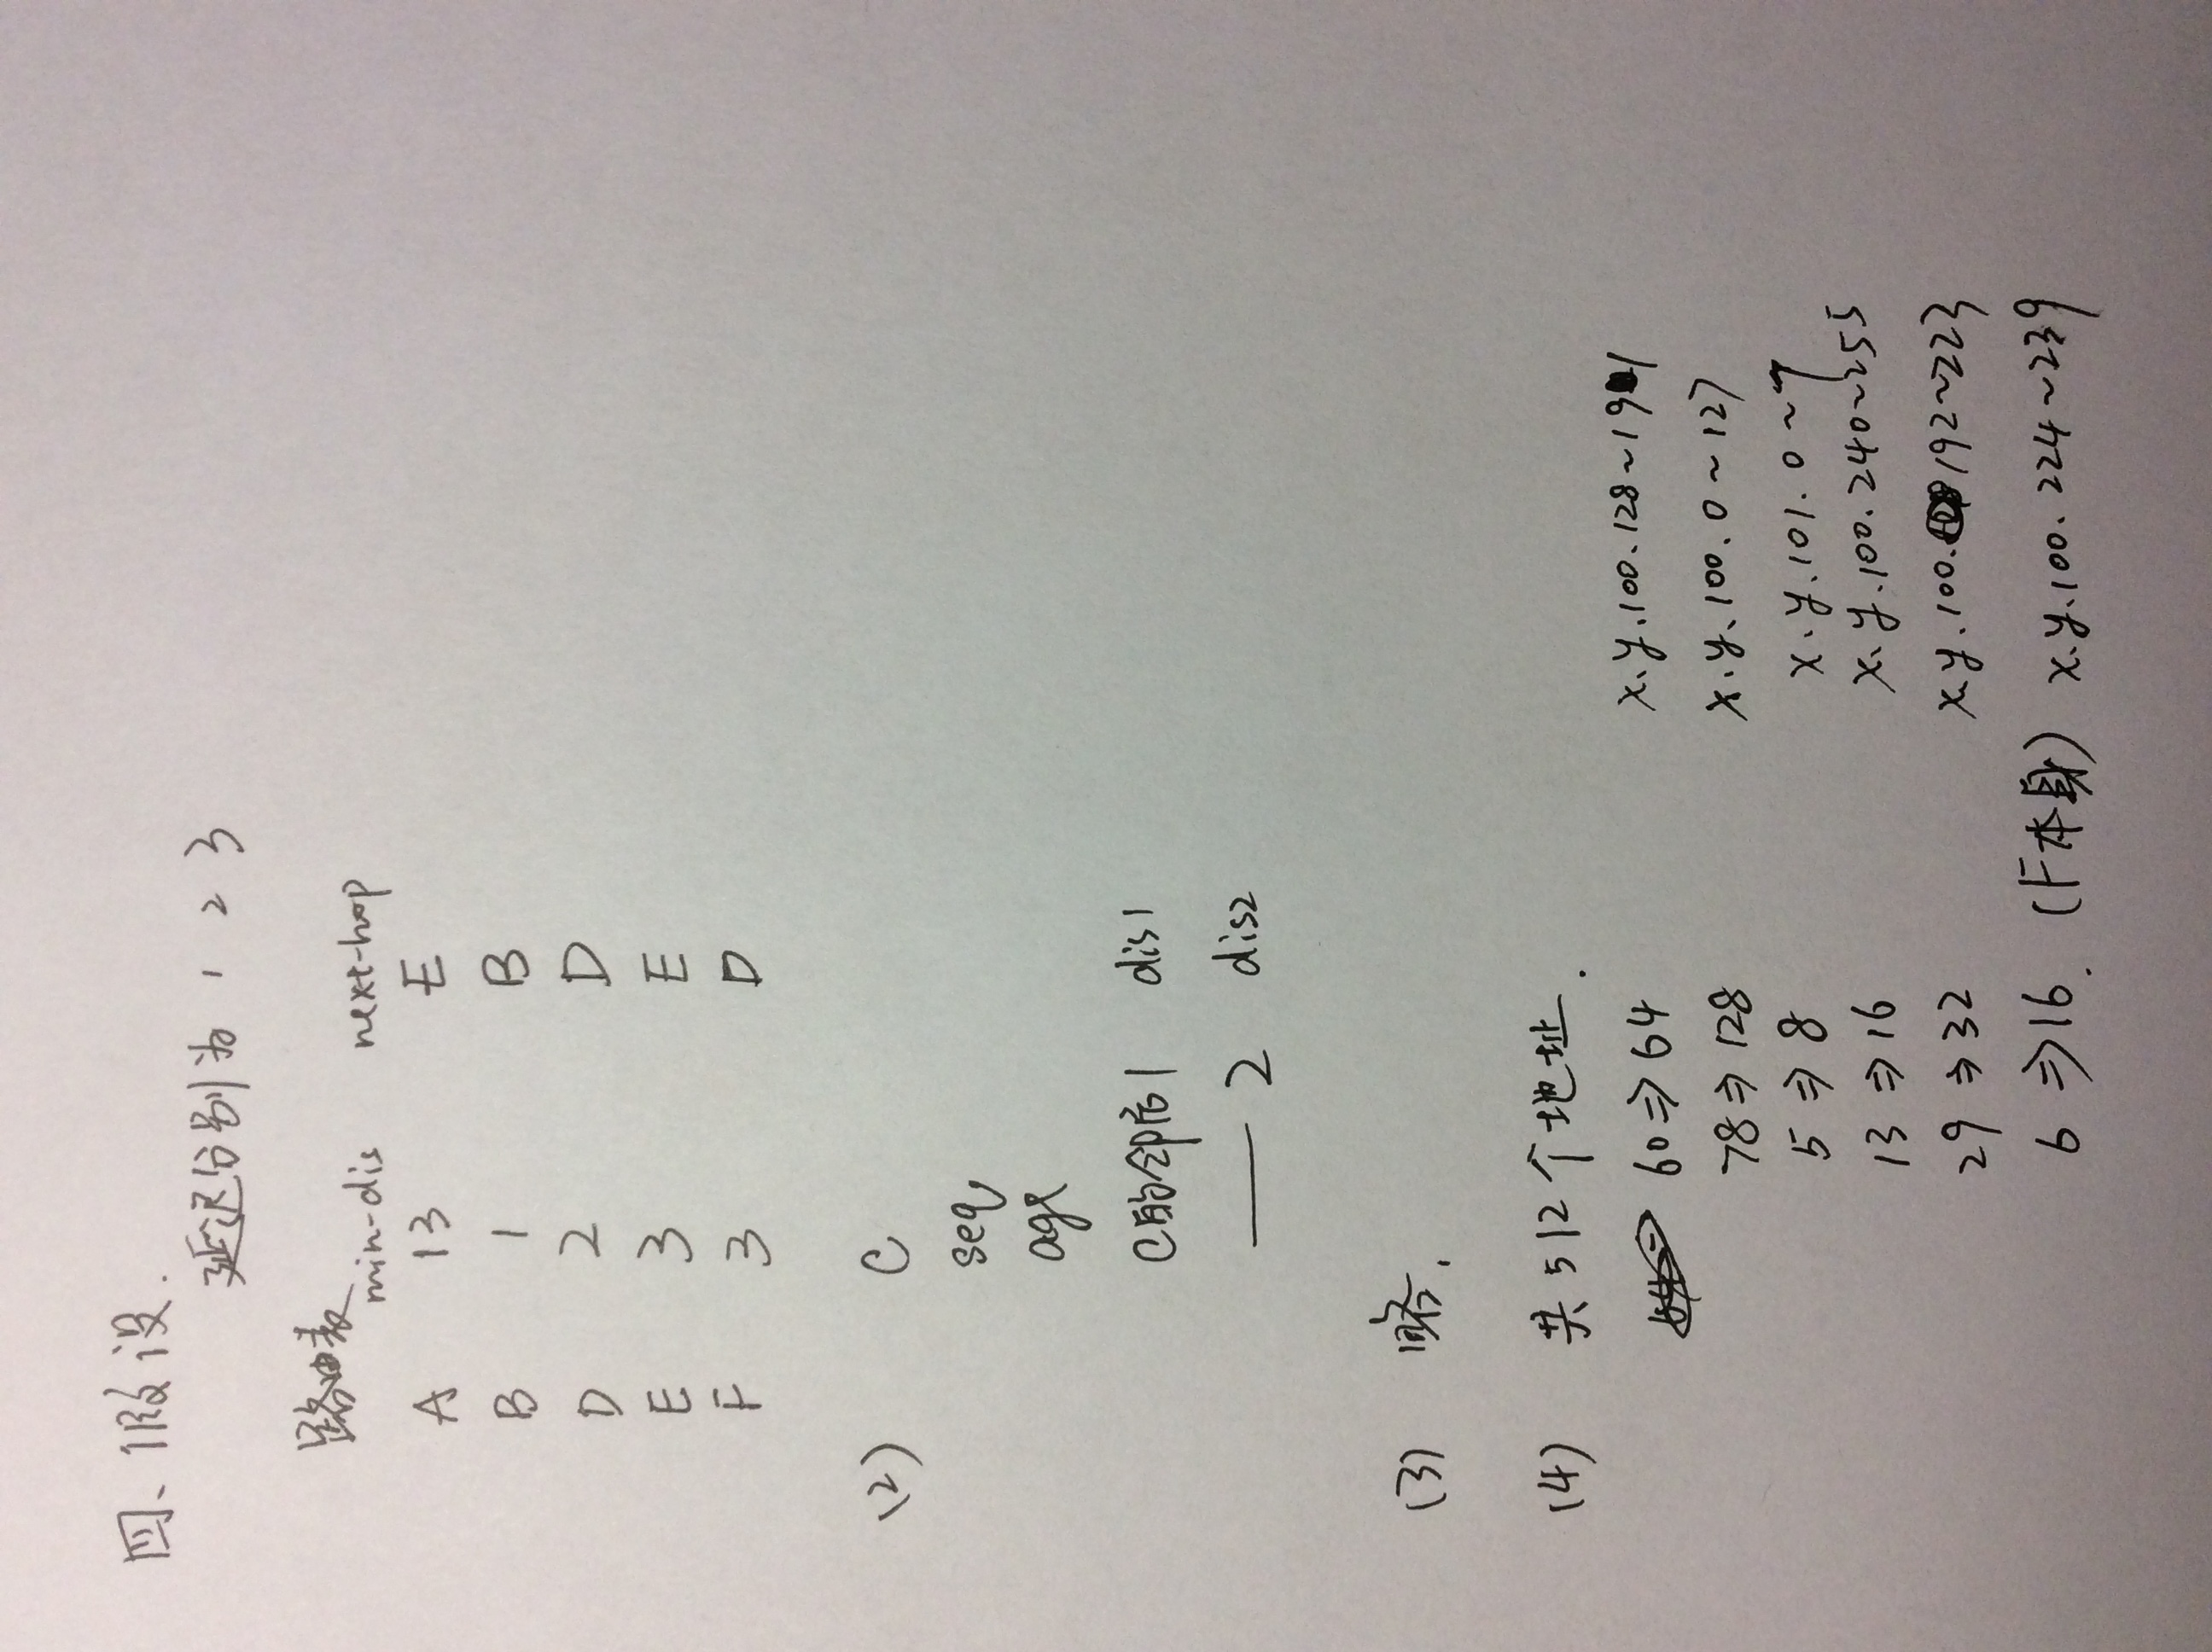 四、假设.
延迟分别为 1 2 3
路由表
min-dis next-hop
A 13 E
B 1 B
D 2 D
E 3 E
F 3 D
(2) C
seq
age
C的邻居1 dis1
—— 2 dis2
(3) 略.
(4) 共512个地址.
60⇒64 x.y.100.128~191
78⇒128 x.y.100.0~127
5⇒8 x.y.101.0~7
13⇒16 x.y.100.240~255
29⇒32 x.y.100.192~223
6⇒16. (F本身) x.y.100.224~239